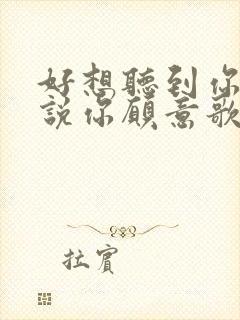 好想聽到你
說你願意歌
拉賓